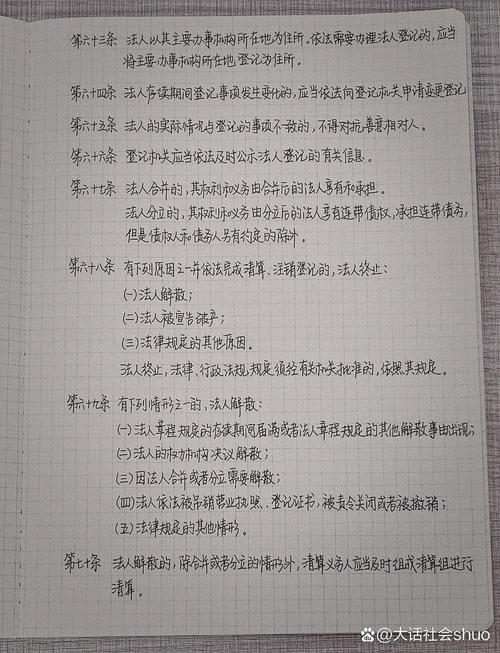 第六十三条 法人以其主要办事机构所在地为住所。依法需要办理法人登记的,应当
将主要办事机构所在地登记为住所。
第六十四条 法人存续期间登记事项发生变化的,应当依法向登记机关申请变更登记
第六十五条 法人的实际情况与登记的事项不一致的,不得对抗善意相对人。
第六十六条 登记机关应当依法及时公示法人登记的有关信息。
第六十七条 法人合并的,其权利和义务由合并后的法人享有和承担。
法人分立的,其权利和义务由分立后的法人享有连带债权,承担连带债务,
但是债权人和债务人另有约定的除外。
第六十八条 有下列原因之一并依法完成清算、注销登记的,法人终止:
(一)法人解散;
(二)法人被宣告破产;
(三)法律规定的其他原因。
法人终止,法律、行政法规规定须经有关机关批准的,依照其规定。
第六十九条 有下列情形之一的,法人解散:
(一)法人章程规定的存续期间届满或者法人章程规定的其他解散事由出现;
(二)法人的权力机构决议解散;
(三)因法人合并或者分立需要解散;
(四)法人依法被吊销营业执照、登记证书,被责令关闭或者被撤销;
(五)法律规定的其他情形。
第七十条 法人解散的,除合并或者分立的情形外,清算义务人应当及时组成清算组进行
清算。
@大话社会shuo